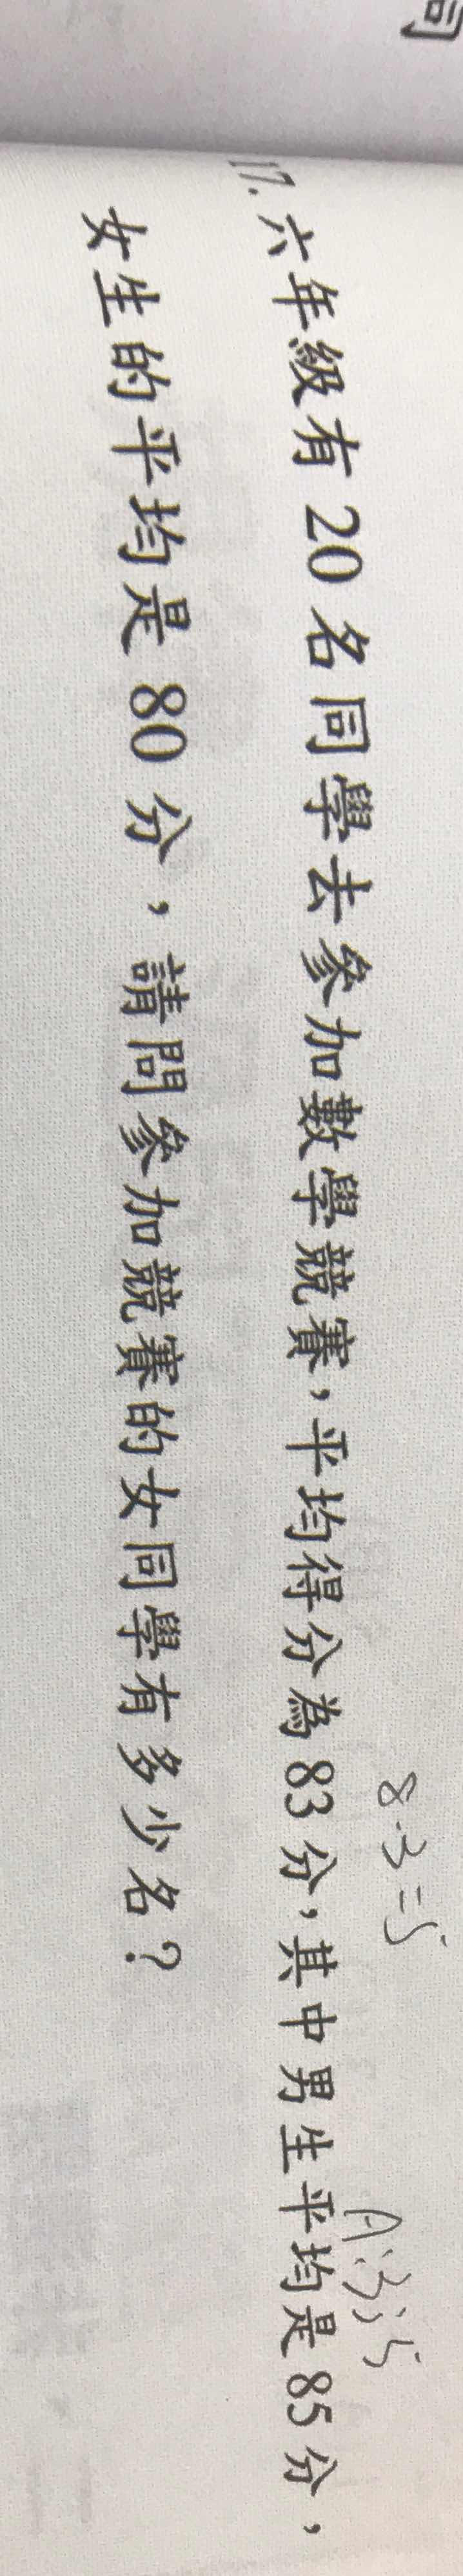 司
8-3=5
A:3;5
17. 六年級有 20 名同學去參加數學競賽,平均得分為 83 分,其中男生平均是 85 分,
女生的平均是 80 分,請問參加競賽的女同學有多少名?